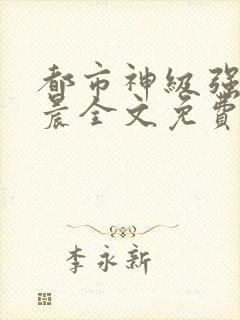 都市神级强
晨全文免费
李永新